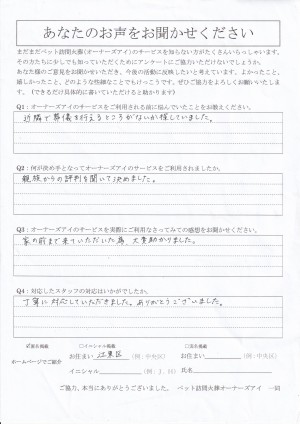 あなたのお声をお聞かせください
まだまだペット訪問火葬(オーナーズアイ)のサービスを知らない方がたくさんいらっしゃいます。
その方たちに少しでも知っていただくためにアンケートにご協力いただけないでしょうか。
あなた様のご意見をお聞かせいただき、今後の活動に反映したいと考えています。よかったこと、
嬉しかったこと、どのような些細なことでもけっこうです。ぜひご協力をよろしくお願いいたします。
(できるだけ具体的に書いていただけると助かります)
Q1:オーナーズアイのサービスをご利用される前に悩んでいたことをお教えください。
近隣で葬儀を行えるところがないか探していました。
Q2:何が決め手となってオーナーズアイのサービスをご利用されましたか。
親族からの評判を聞いて決めました。
Q3:オーナーズアイのサービスを実際にご利用なさってみての感想をお聞かせください。
家の前まで来ていただいた為、大変助かりました。
Q4:対応したスタッフの対応はいかがでしたか。
丁寧に対応していただきました。ありがとうございました。
匿名掲載 □イニシャル掲載 □実名掲載
ホームページでご紹介 お住まい 江東区 (例:中央区) お住まい (例:中央区)
イニシャル (例:J.H) 氏名
ご協力、本当にありがとうございました。 ペット訪問火葬オーナーズアイ 一同